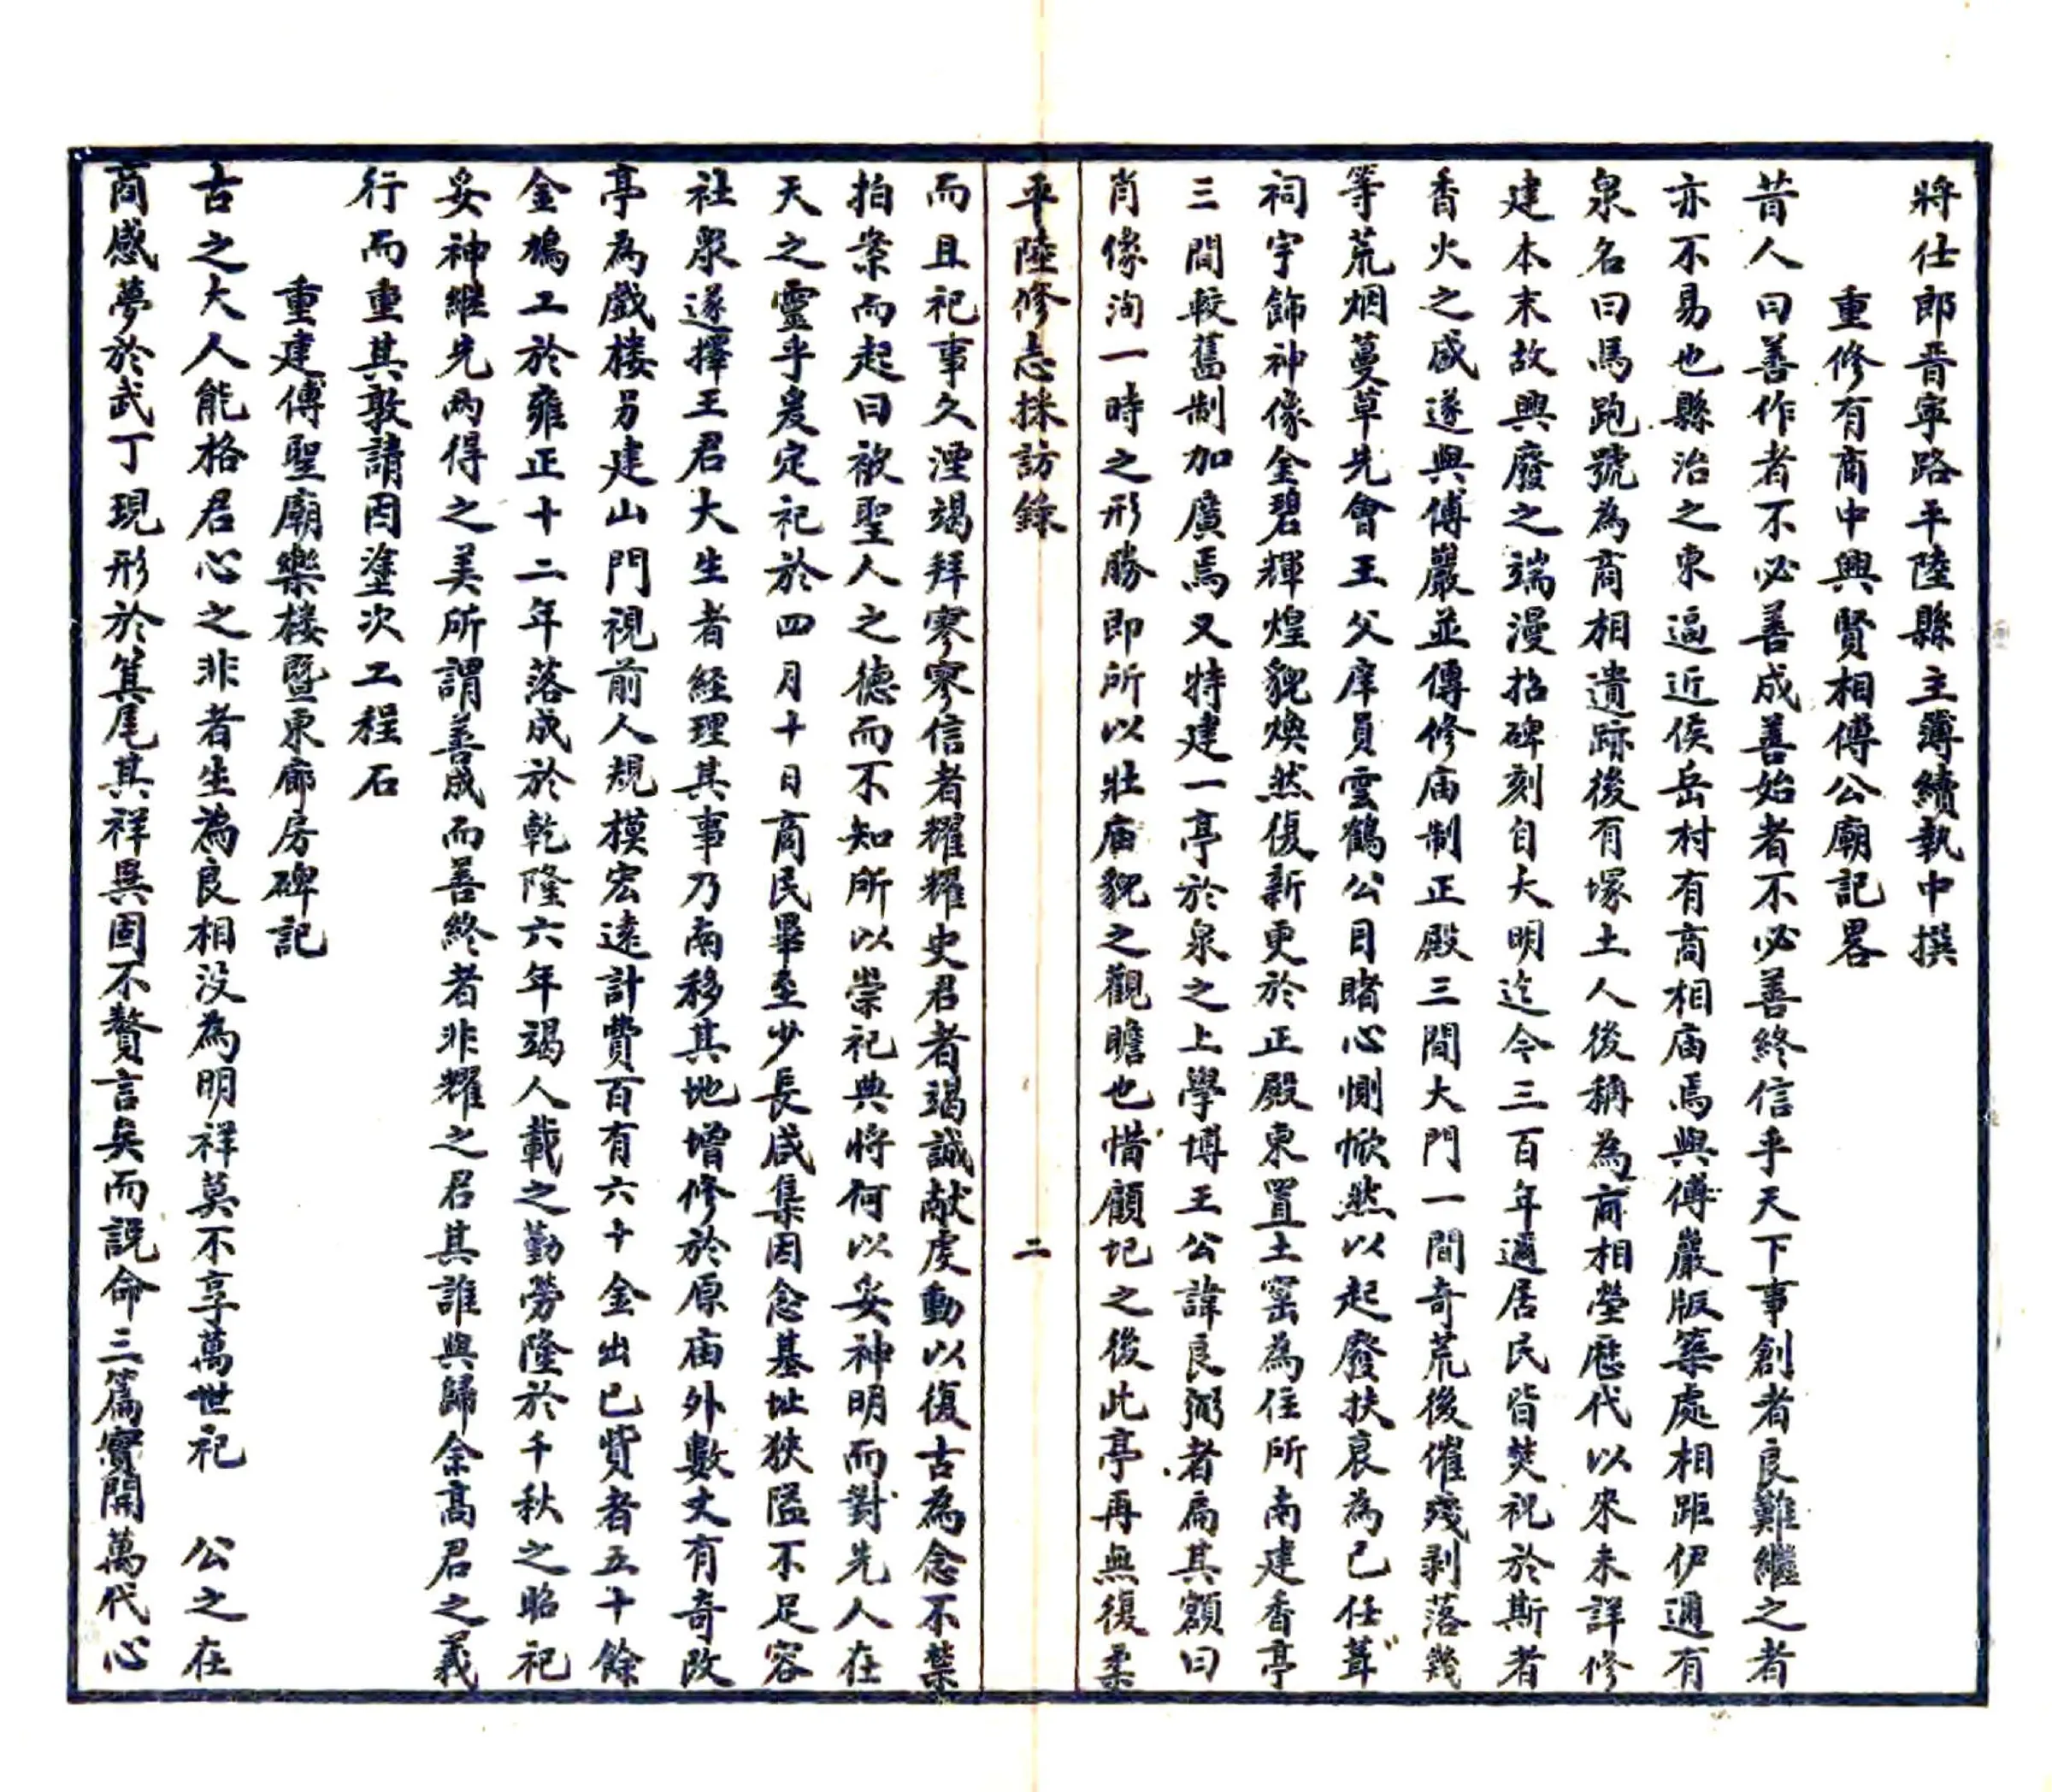 將仕郎晋寕路平陸縣主簿續執中撰
重修有商中興賢相傅公廟記畧
昔人曰善作者不必善成善始者不必善終信乎天下事創者良難繼之者
亦不易也縣治之東逼近侯岳村有商相庙焉與傅巖版築處相距伊邇有
泉名曰馬跑號為商相遺跡後有塚土人後稱為商相塋歷代以來未詳修
建本末故興廢之端漫拈碑刻自大明迄今三百年邇居民皆焚祝於斯者
香火之盛遂與傅巖並傳修庙制正殿三間大門一間奇荒後催殘剥落幾
等荒烟蔓草先會王父庠員雲鶴公目睹心惻㤿然以起廢扶哀為己任葺
祠宇飾神像金碧輝煌貌煥然復新更於正殿東置土窑為住所南建香亭
三間較舊制加廣焉又特建一亭於泉之上學博王公諱良弼者扁其額曰
肖像洵一時之形勝即所以壯庙貌之觀瞻也惜顧圮之後此亭再無復柔
平陸修志採訪錄
二
而且祀事久湮竭拜寥寥信者耀耀史君者竭誠献虔動以復古為念不禁
拍案而起曰被聖人之德而不知所以崇祀典將何以妥神明而對先人在
天之靈乎爰定祀於四月十日商民畢至少長咸集因念基址狹隘不足容
社眾遂擇王君大生者經理其事乃南移其地增修於原庙外數丈有奇改
亭為戲楼另建山門視前人規模宏遠計費百有六十金出己貲者五十餘
金鳩工於雍正十二年落成於乾隆六年竭人載之勤勞隆於千秋之昭祀
妥神繼先兩得之美所謂善成而善終者非耀之君其誰與歸余高君之義
行而重其敦請因塗次工程石
重建傅聖廟樂楼暨東廊房碑記
古之大人能格君心之非者生為良相没為明祥莫不享萬世祀　公之在
商感夢於武丁現形於箕尾其祥異固不贅言矣而説命三篇實開萬代心